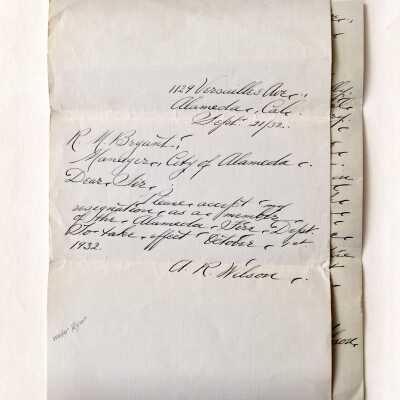 1129 Versailles Ave.,
Alameda, Cal.
Sept. 21/32.
R. M. Bryant,
Manager, City of Alameda.
Dear Sir,
Please accept my
resignation as a member
of the Alameda Fire Dept.
To take effect October 1st
1932.
A. R. Wilson.